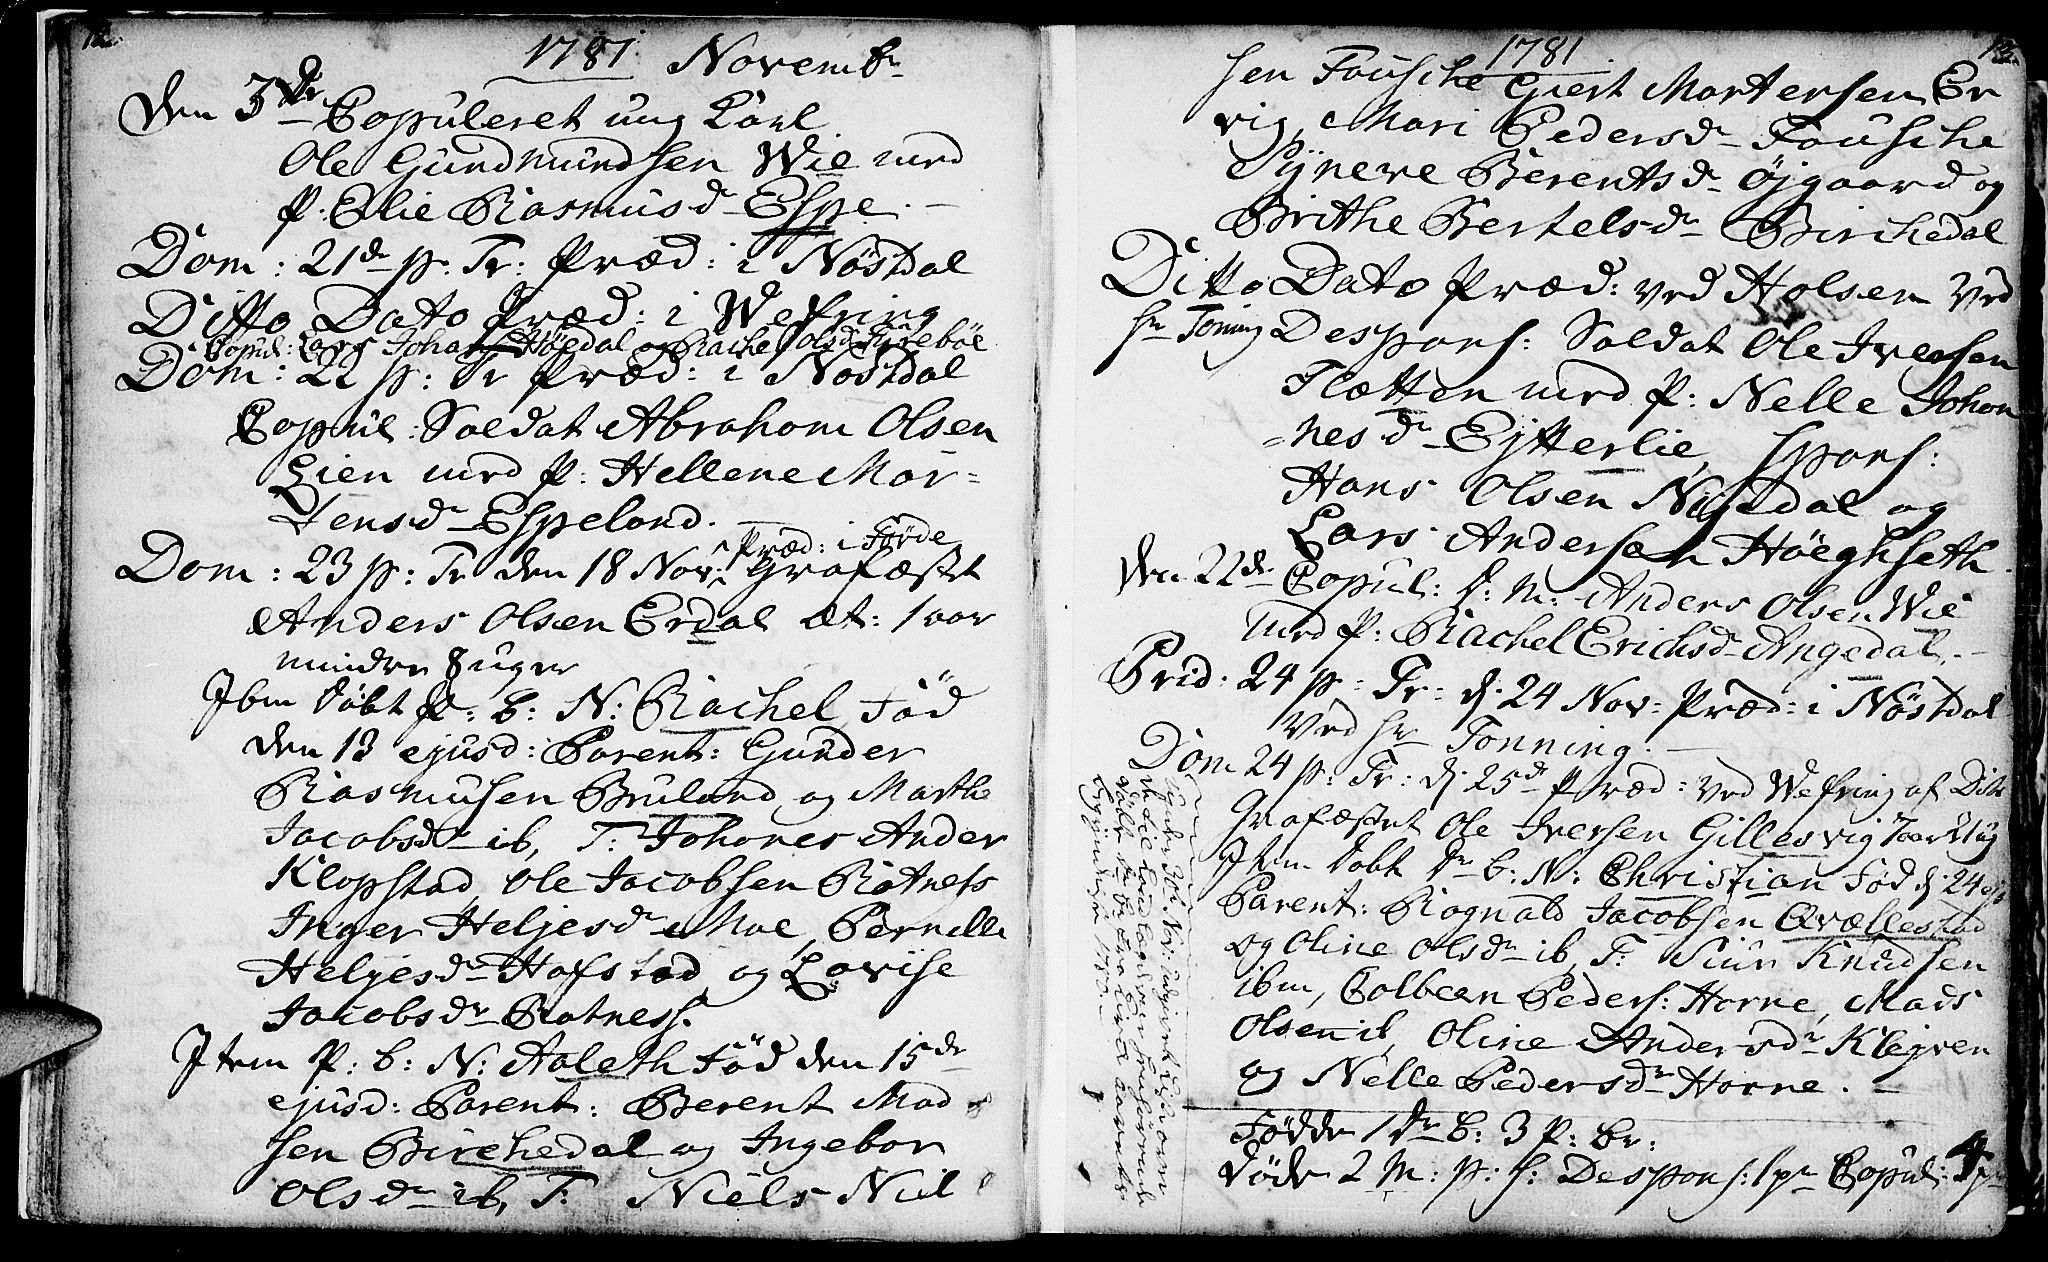 12.
1781. Novembr
Den 3de Copuleret ung Karl
Ole Gundmundsen Wie med
P. Elie Rasmusdr Espe. -
Dom: 21de p. Tr: Præd: i Nøstdal
Ditto Dato Præd: i Wefring
Copul: Lars Johans: Høedal og Rachel Olsdr Fürebøe
Dom: 22 p: Tr Præd: i Nøstdal
Copul: Soldat Abraham Olsen
Lien med P: Hellene Mor=
tensdr Espeland. -
Præd: i Førde
Dom: 23 p: Tr den 18 Nov: Grafæstet
Anders Olsen Erdal æt: 1 aar
mindre 8 uger
Ibm døbt P: b: N: Rachel, Fød
den 13 ejusd: Parent: Gunder
Rasmusen Bruland og Marthe
Jacobsdr ib, T: Johanes Ander
Klopstad, Ole Jacobsen Ratnes
Inger Heljesdr Moe Pernille
Heljesdr Hafstad og Lovise
Jacobsdr Ratness.
Item P: b: N: Aaleth Fød den 15de
ejusd: Parent: Berent Mad
sen Birchedal og Ingebor
Olsdr ib, T: Niels Niel
1781.
sen Fousche Giert Mortensen Er
vig, Mari Pedersdr Fousche
Synere Berentsdr Øjgaard og
Brithe Bertelsdr Birchedal
Ditto Dato Præd: ved Holsen ved
Hr Toning Despons: Soldat Ole Iversen
Flætten med P: Nelle Johan
=nesdr Eytterlie, spons:
Hans Olsen Nysedal og
Lars Andersen Høeghseth.
den 22de Copul: S: M: Anders Olsen Wie
med P: Rachel Erichsdr Angedal. -
Prid. 24 p: Tr: d. 24 Nov: Præd: i Nøstdal
ved Hr Tonning. -
Dom 24 p: Tr: d. 25de Præd: ved Wefring af Dito
Grafæstet Ole Iversen Gillesvig
Item døbt Dr b: N: Christian Fød d. 24
Parent: Rognald Jacobsen Qvællestad
og Oline Olsdr ib, T: Siur Knudsen
ibm, Colbeen Peders: Horne, Mads
Olsen ib, Oline Andersdr Klejven
og Nelle Pedersdr Horne. -
Fødde 1 Dr b: 3 P: br:
døde 2 M: p: s: Despons: 1 pr Copul: 4 pr